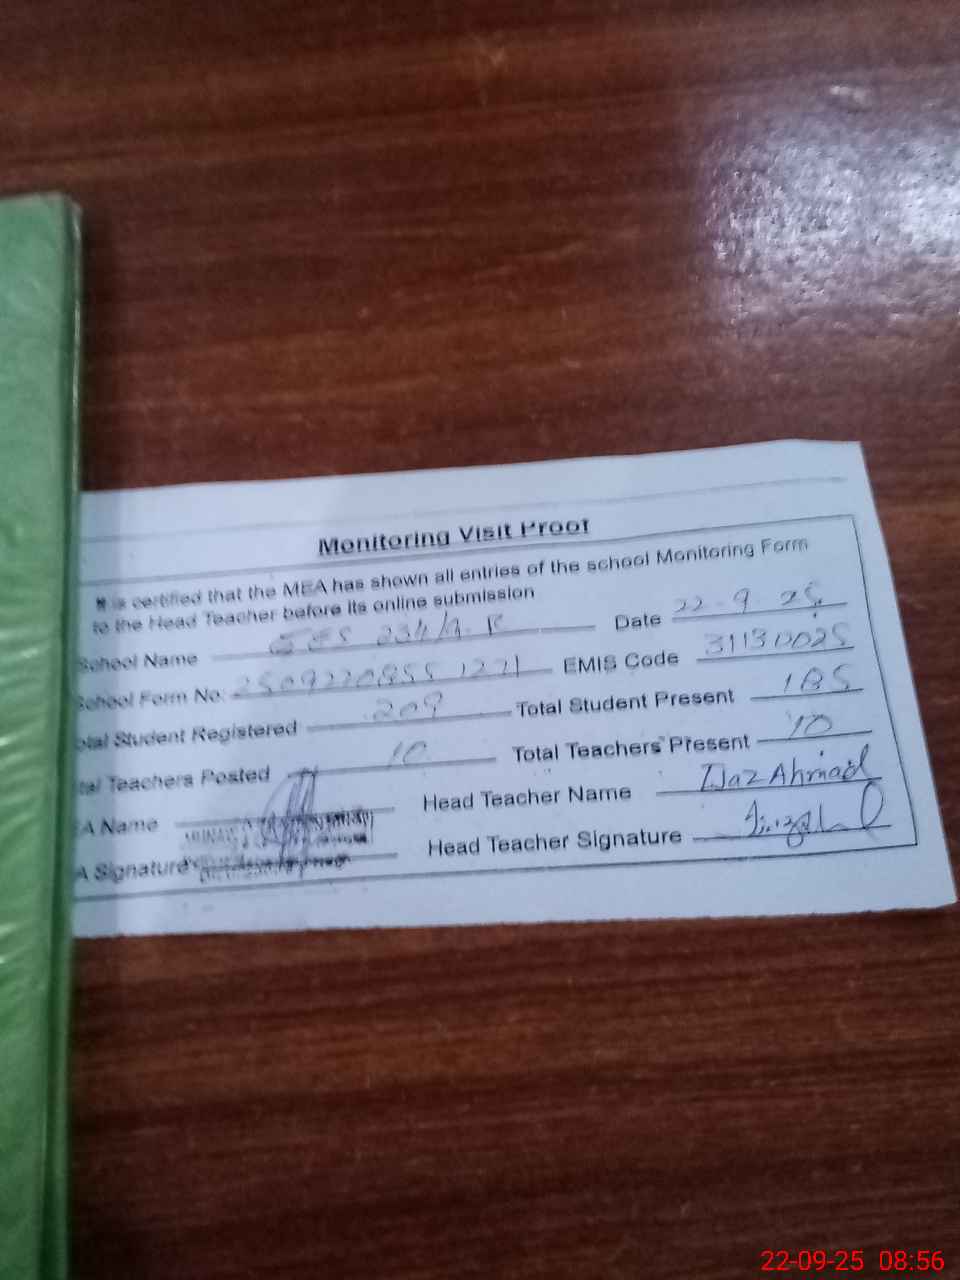 Monitoring Visit Proof
It is certified that the MEA has shown all entries of the school Monitoring Form
to the Head Teacher before its online submission
School Name GES 234/9.R Date 22-9-25
School Form No: 25092208551221 EMIS Code 31130025
otal Student Registered 209 Total Student Present 185
tal Teachers Posted 10 Total Teachers Present 10
A Name Head Teacher Name Ijaz Ahmad
A Signature Head Teacher Signature
22-09-25 08:56